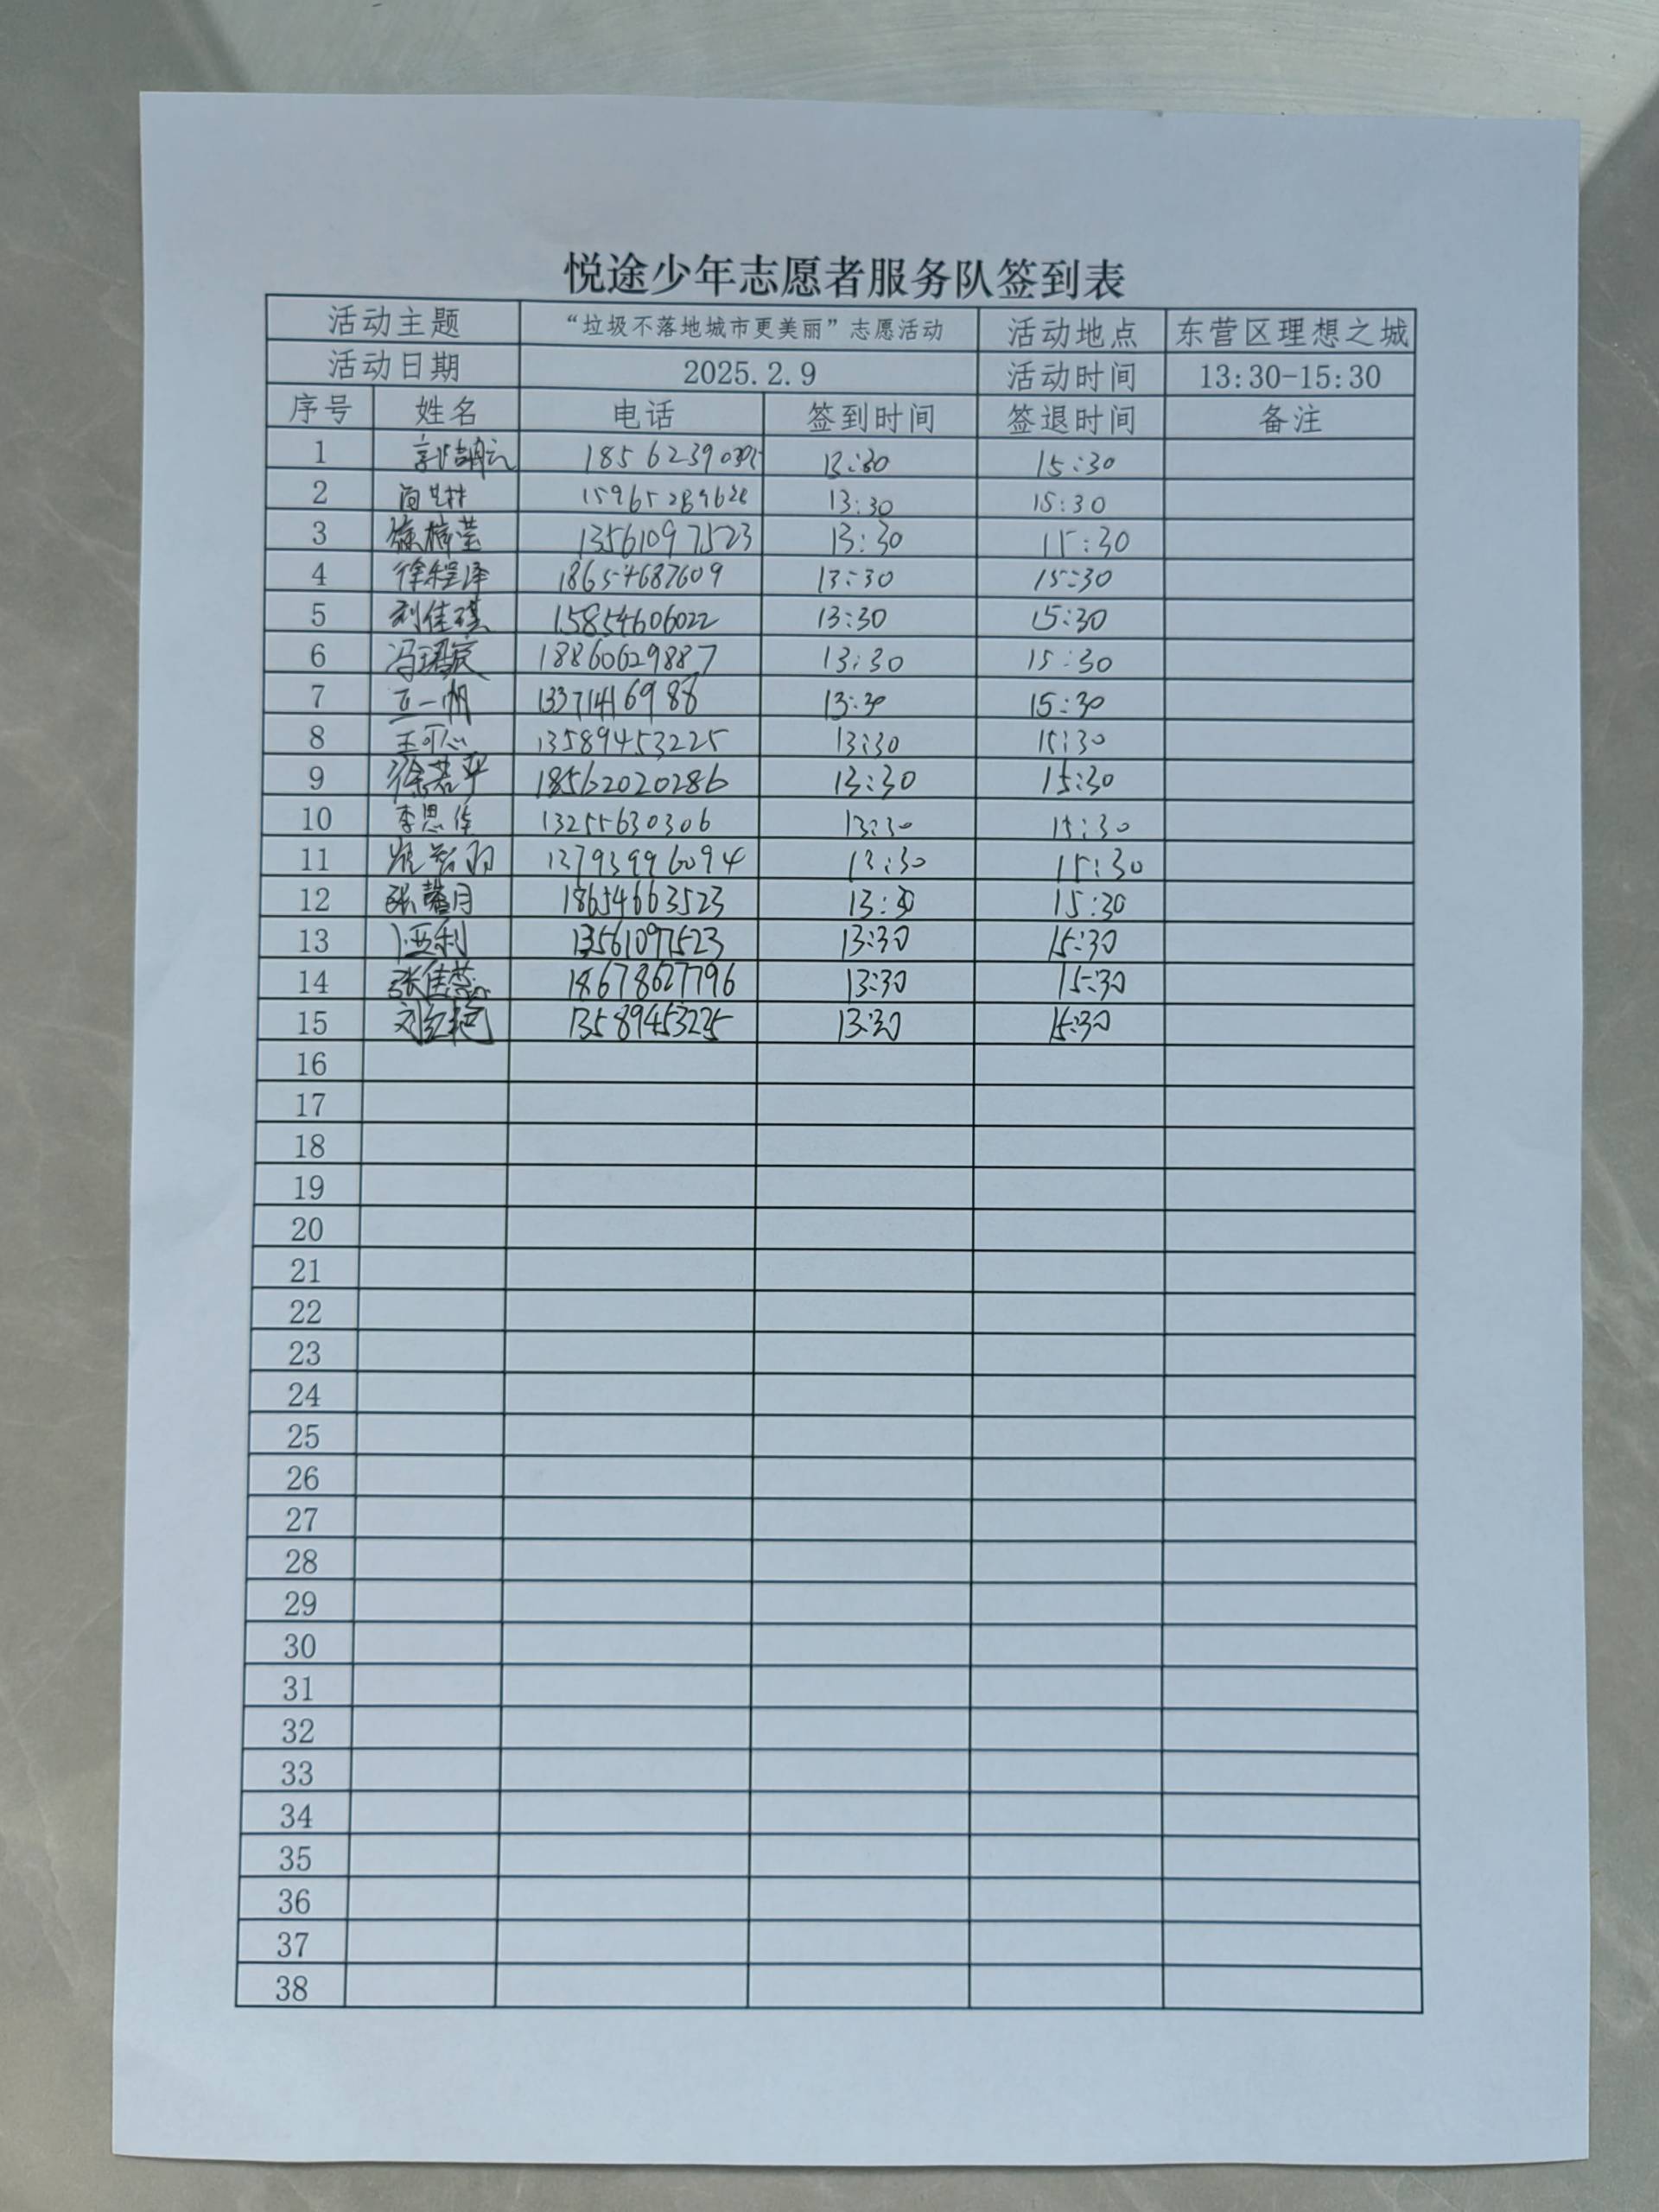 悦途少年志愿者服务队签到表
活动主题 “垃圾不落地城市更美丽”志愿活动 活动地点 东营区理想之城
活动日期 2025.2.9 活动时间 13:30-15:30
序号 姓名 电话 签到时间 签退时间 备注
1 13:30 15:30
2 13:30 15:30
3 徐梓莹 13561097523 13:30 15:30
4 徐程泽 18654687609 13:30 15:30
5 刘佳琪 15854606022 13:30 15:30
6 18860629887 13:30 15:30
7 13371416988 13:30 15:30
8 王可心 13589453225 13:30 15:30
9 徐若平 18562020286 13:30 15:30
10 13255630306 13:30 15:30
11 13793996094 13:30 15:30
12 张馨月 18654663523 13:30 15:30
13 13561097523 13:30 15:30
14 张佳蕊 18678627796 13:30 15:30
15 刘红艳 13589453225 13:30 15:30
16
17
18
19
20
21
22
23
24
25
26
27
28
29
30
31
32
33
34
35
36
37
38